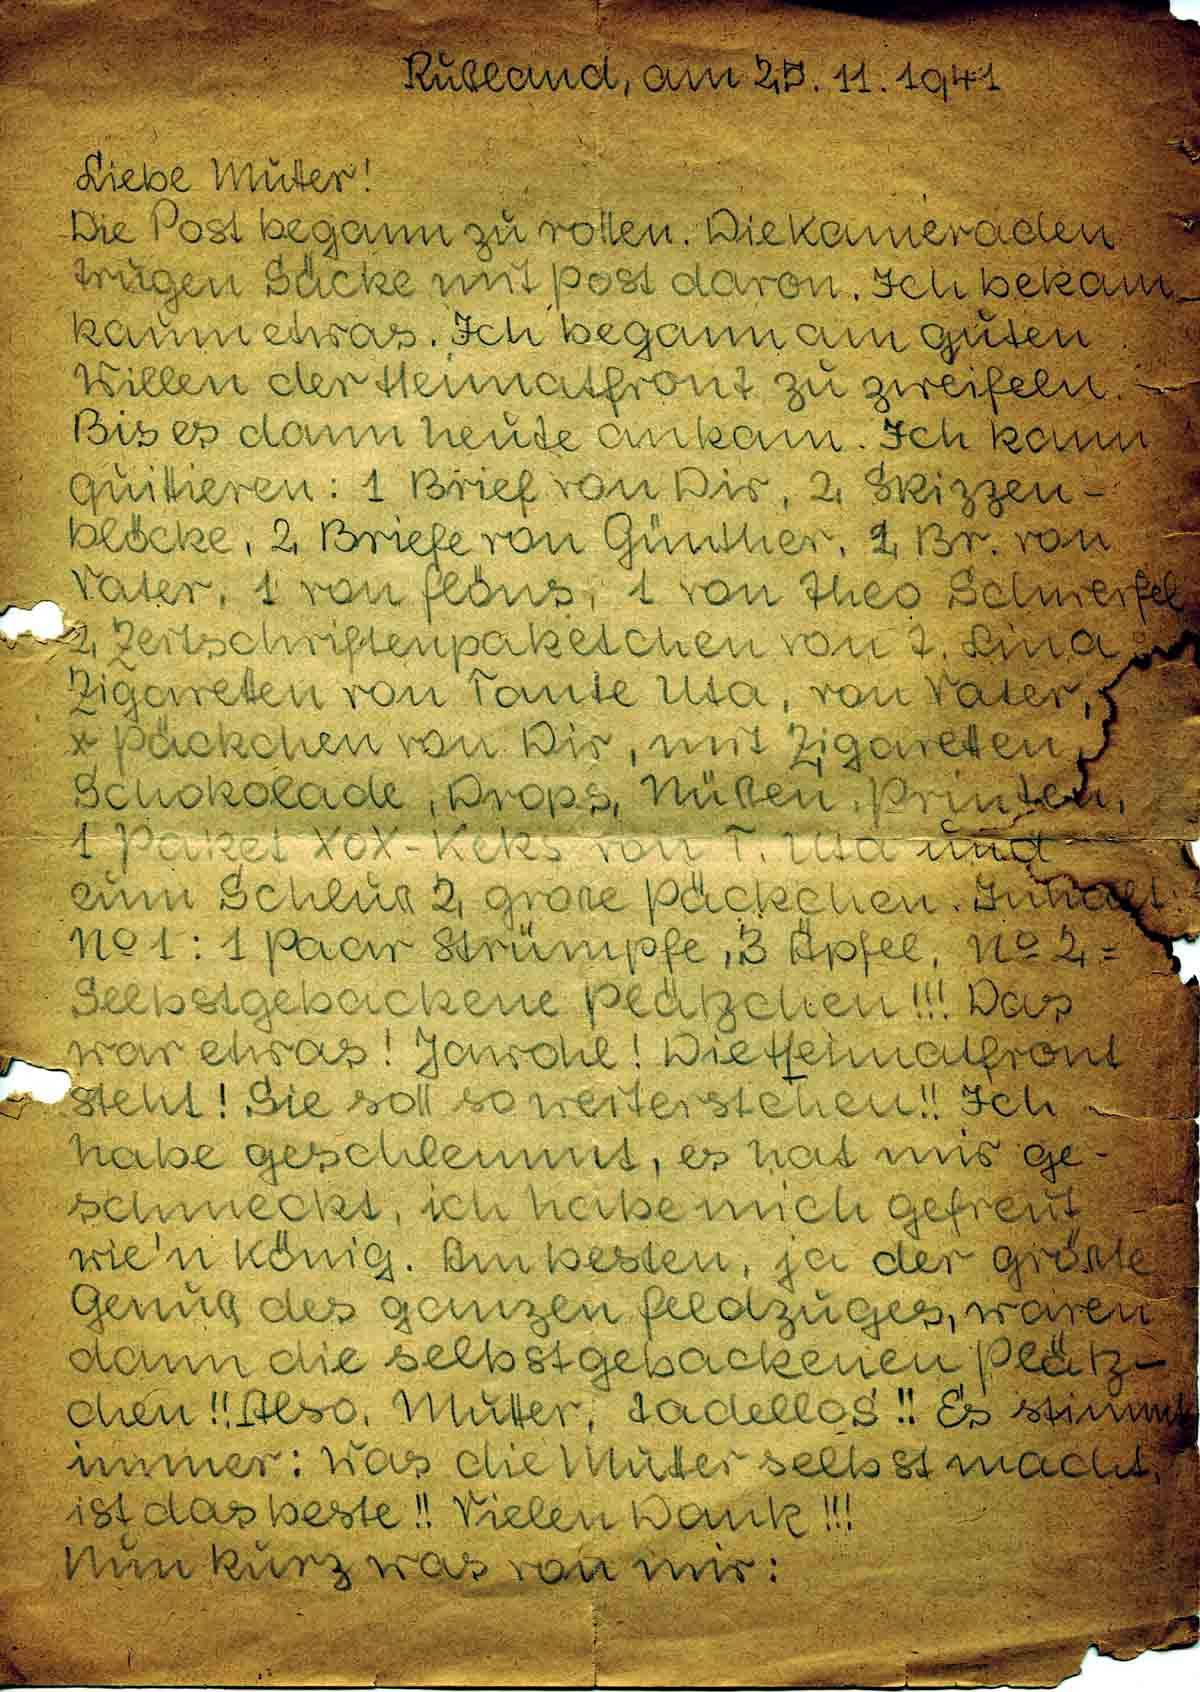 Rußland, am 25. 11. 1941
Liebe Mutter!
Die Post begann zu rollen. Die Kameraden
trugen Säcke mit Post davon. Ich bekam
kaum etwas. Ich begann am guten
Willen der Heimatfront zu zweifeln.
Bis es dann heute ankam. Ich kann
quittieren: 1 Brief von Dir, 2 Skizzen-
blöcke, 2 Briefe von Günther, 2 Br. von
Vater, 1 von Flöns, 1 von Theo Schwerfel
2 Zeitschriftenpaketchen von T. Lina
Zigaretten von Tante Uta, von Vater,
Päckchen von Dir, mit Zigaretten,
Schokolade, Drops, Nüßen, Printen,
1 Paket XOX-Keks von T. Uta und
zum Schluß 2 große Päckchen. Inhalt:
No 1: 1 Paar Strümpfe, 3 Äpfel, No 2 =
Selbstgebackene Plätzchen!!! Das
war etwas! Jawohl! Die Heimatfront
steht! Sie soll so weiterstehen!! Ich
habe geschlemmt, es hat mir ge-
schmeckt, ich habe mich gefreut
wie'n König. Am besten, ja der größte
Genuß des ganzen Feldzuges, waren
dann die selbstgebackenen Plätz-
chen!! Also, Mutter, tadellos!! Es stimmt
immer: Was die Mutter selbst macht,
ist das beste!! Vielen Dank!!!
Nun kurz was von mir: